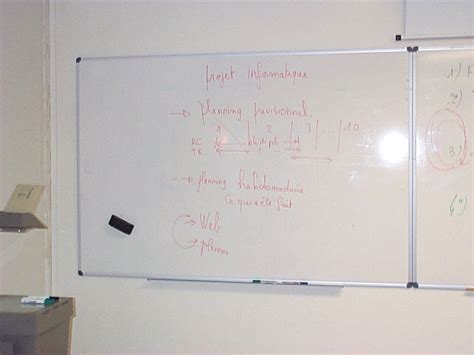 projet informatique
→ planning previsionnel.
1 | 2 | 3 | ... | 10
RE
TR
→ planning hebdomadaire
Ce qui a été fait
→ Web
→
1)
2)
3)